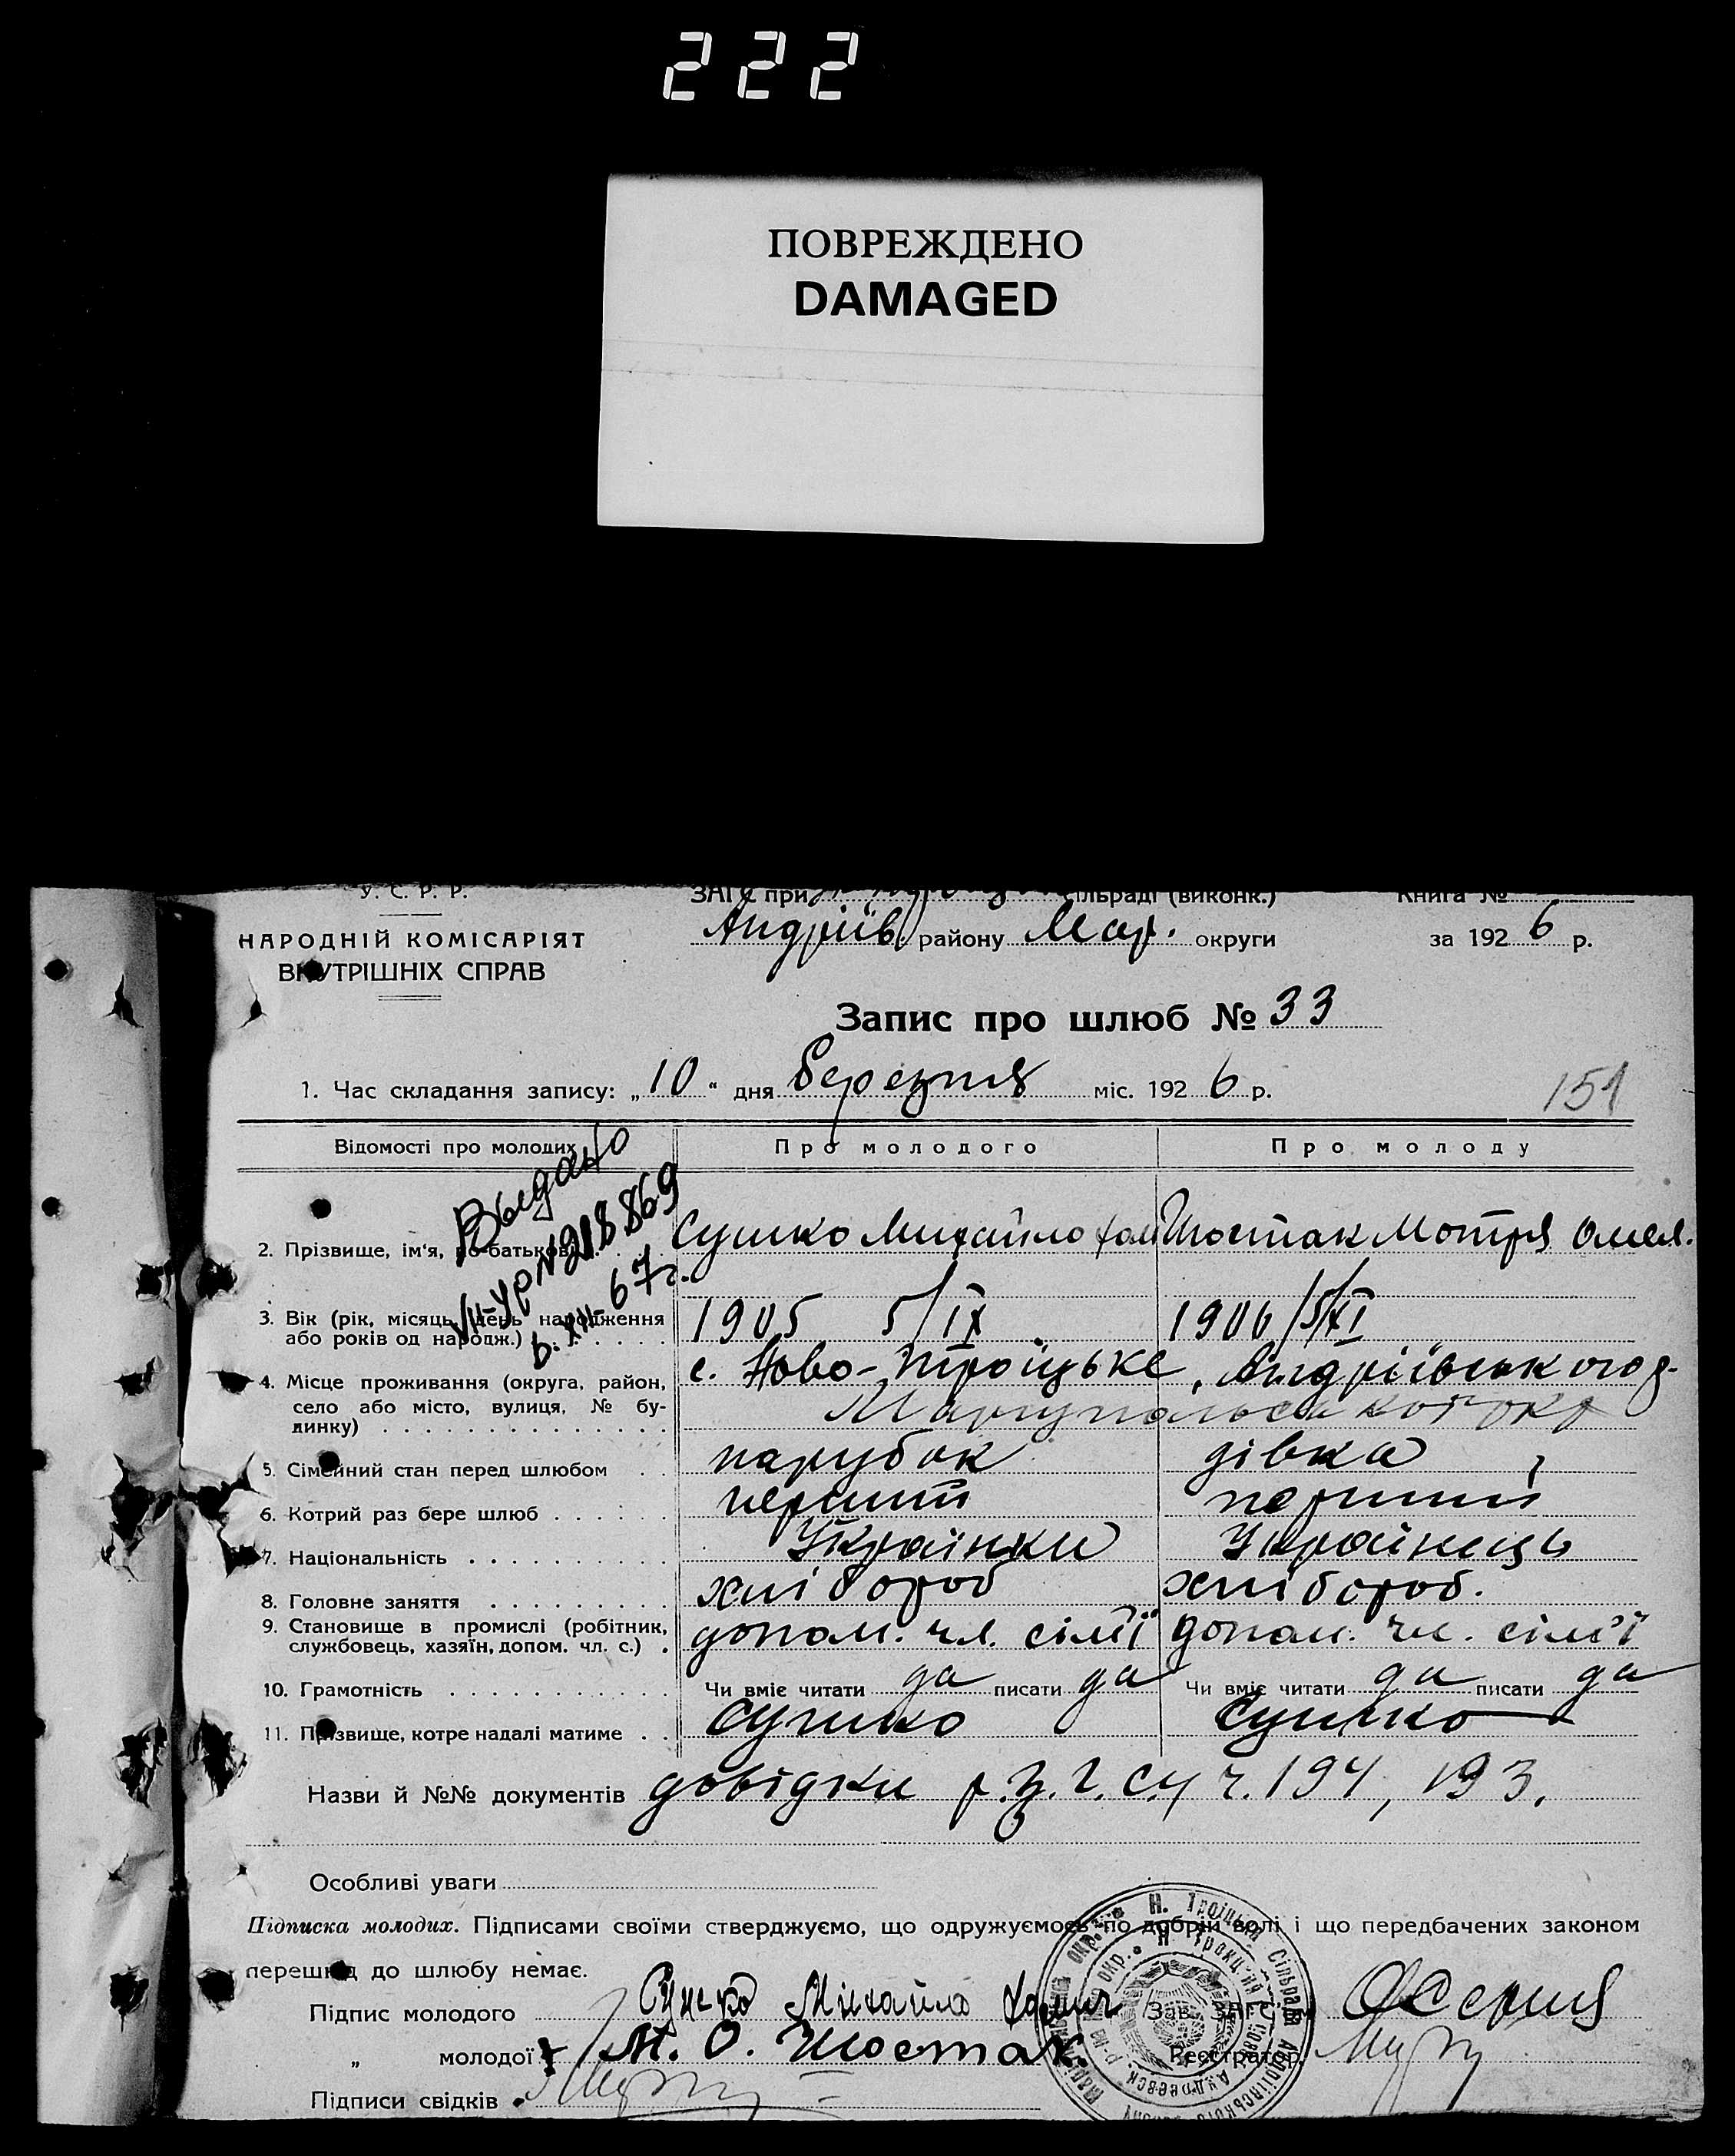 222
ПОВРЕЖДЕНО
DAMAGED
У. С. Р. Р.
ЗАГС при сільраді (виконк.) Книга №
НАРОДНІЙ КОМІСАРІЯТ
ВНУТРІШНІХ СПРАВ
Андріїв. району Мар. округи за 1926 р.
Запис про шлюб № 33
1. Час складання запису: „10“ дня березня міс. 1926 р.
151
Відомості про молодих
Про молодого
Про молоду
Выдано
№218869
67г.
2. Прізвище, ім'я, по-батькові
Сушко Михайло Хам
Шостак Мотря Омел.
3. Вік (рік, місяць, день народження
або років од народж.)
1905 5/IX
1906 15/XI
4. Місце проживання (округа, район,
село або місто, вулиця, № бу-
динку)
с. Ново-Троїцьке, Андріївського
Маріупольської окр
5. Сімейний стан перед шлюбом
парубок
дівка
6. Котрий раз бере шлюб
перший
перший
7. Національність
Українки
Українець
8. Головне заняття
хлібороб
хлібороб.
9. Становище в промислі (робітник,
службовець, хазяїн, допом. чл. с.)
допом. чл. сімї
допом. чл. сім'ї
10. Грамотність
Чи вміє читати да писати да
Чи вміє читати да писати да
11. Прізвище, котре надалі матиме
Сушко
Сушко
Назви й №№ документів довідки р.З.Г.С.у ч. 194, 193.
Особливі уваги
Підписка молодих. Підписами своїми стверджуємо, що одружуємось по добрій волі і що передбачених законом
перешкод до шлюбу немає.
Підпис молодого Сушко Михайло
Зав. ЗАГС'ом
„ молодої М. О. Шостак.
Реєстратор
Підписи свідків
Н. Троїцька Сільрада Андріївського